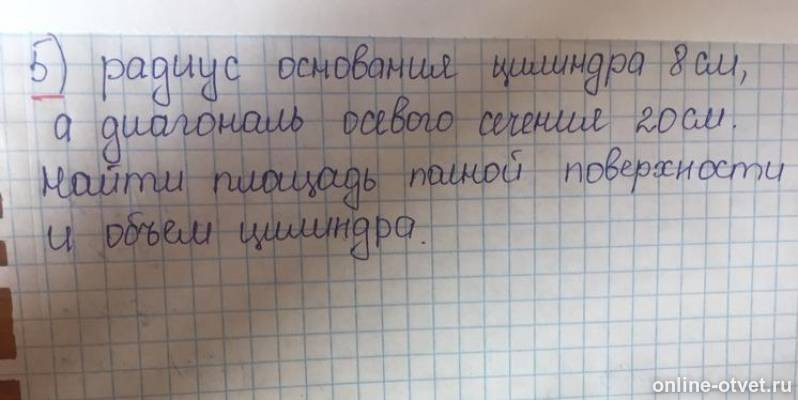 5) радиус основания цилиндра 8 см,
а диагональ осевого сечения 20 см.
Найти площадь полной поверхности
и объем цилиндра.
online-otvet.ru